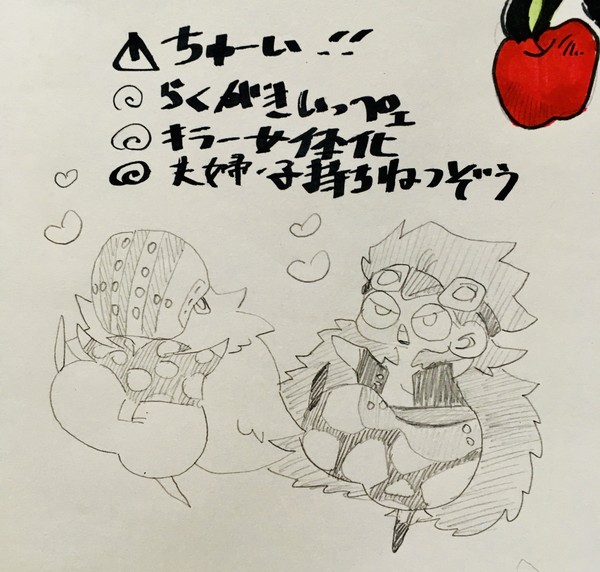 ⚠ ちゅーい !!
らくがきいっぷぇ
キラー女体化
夫婦・子持ちねつぞう